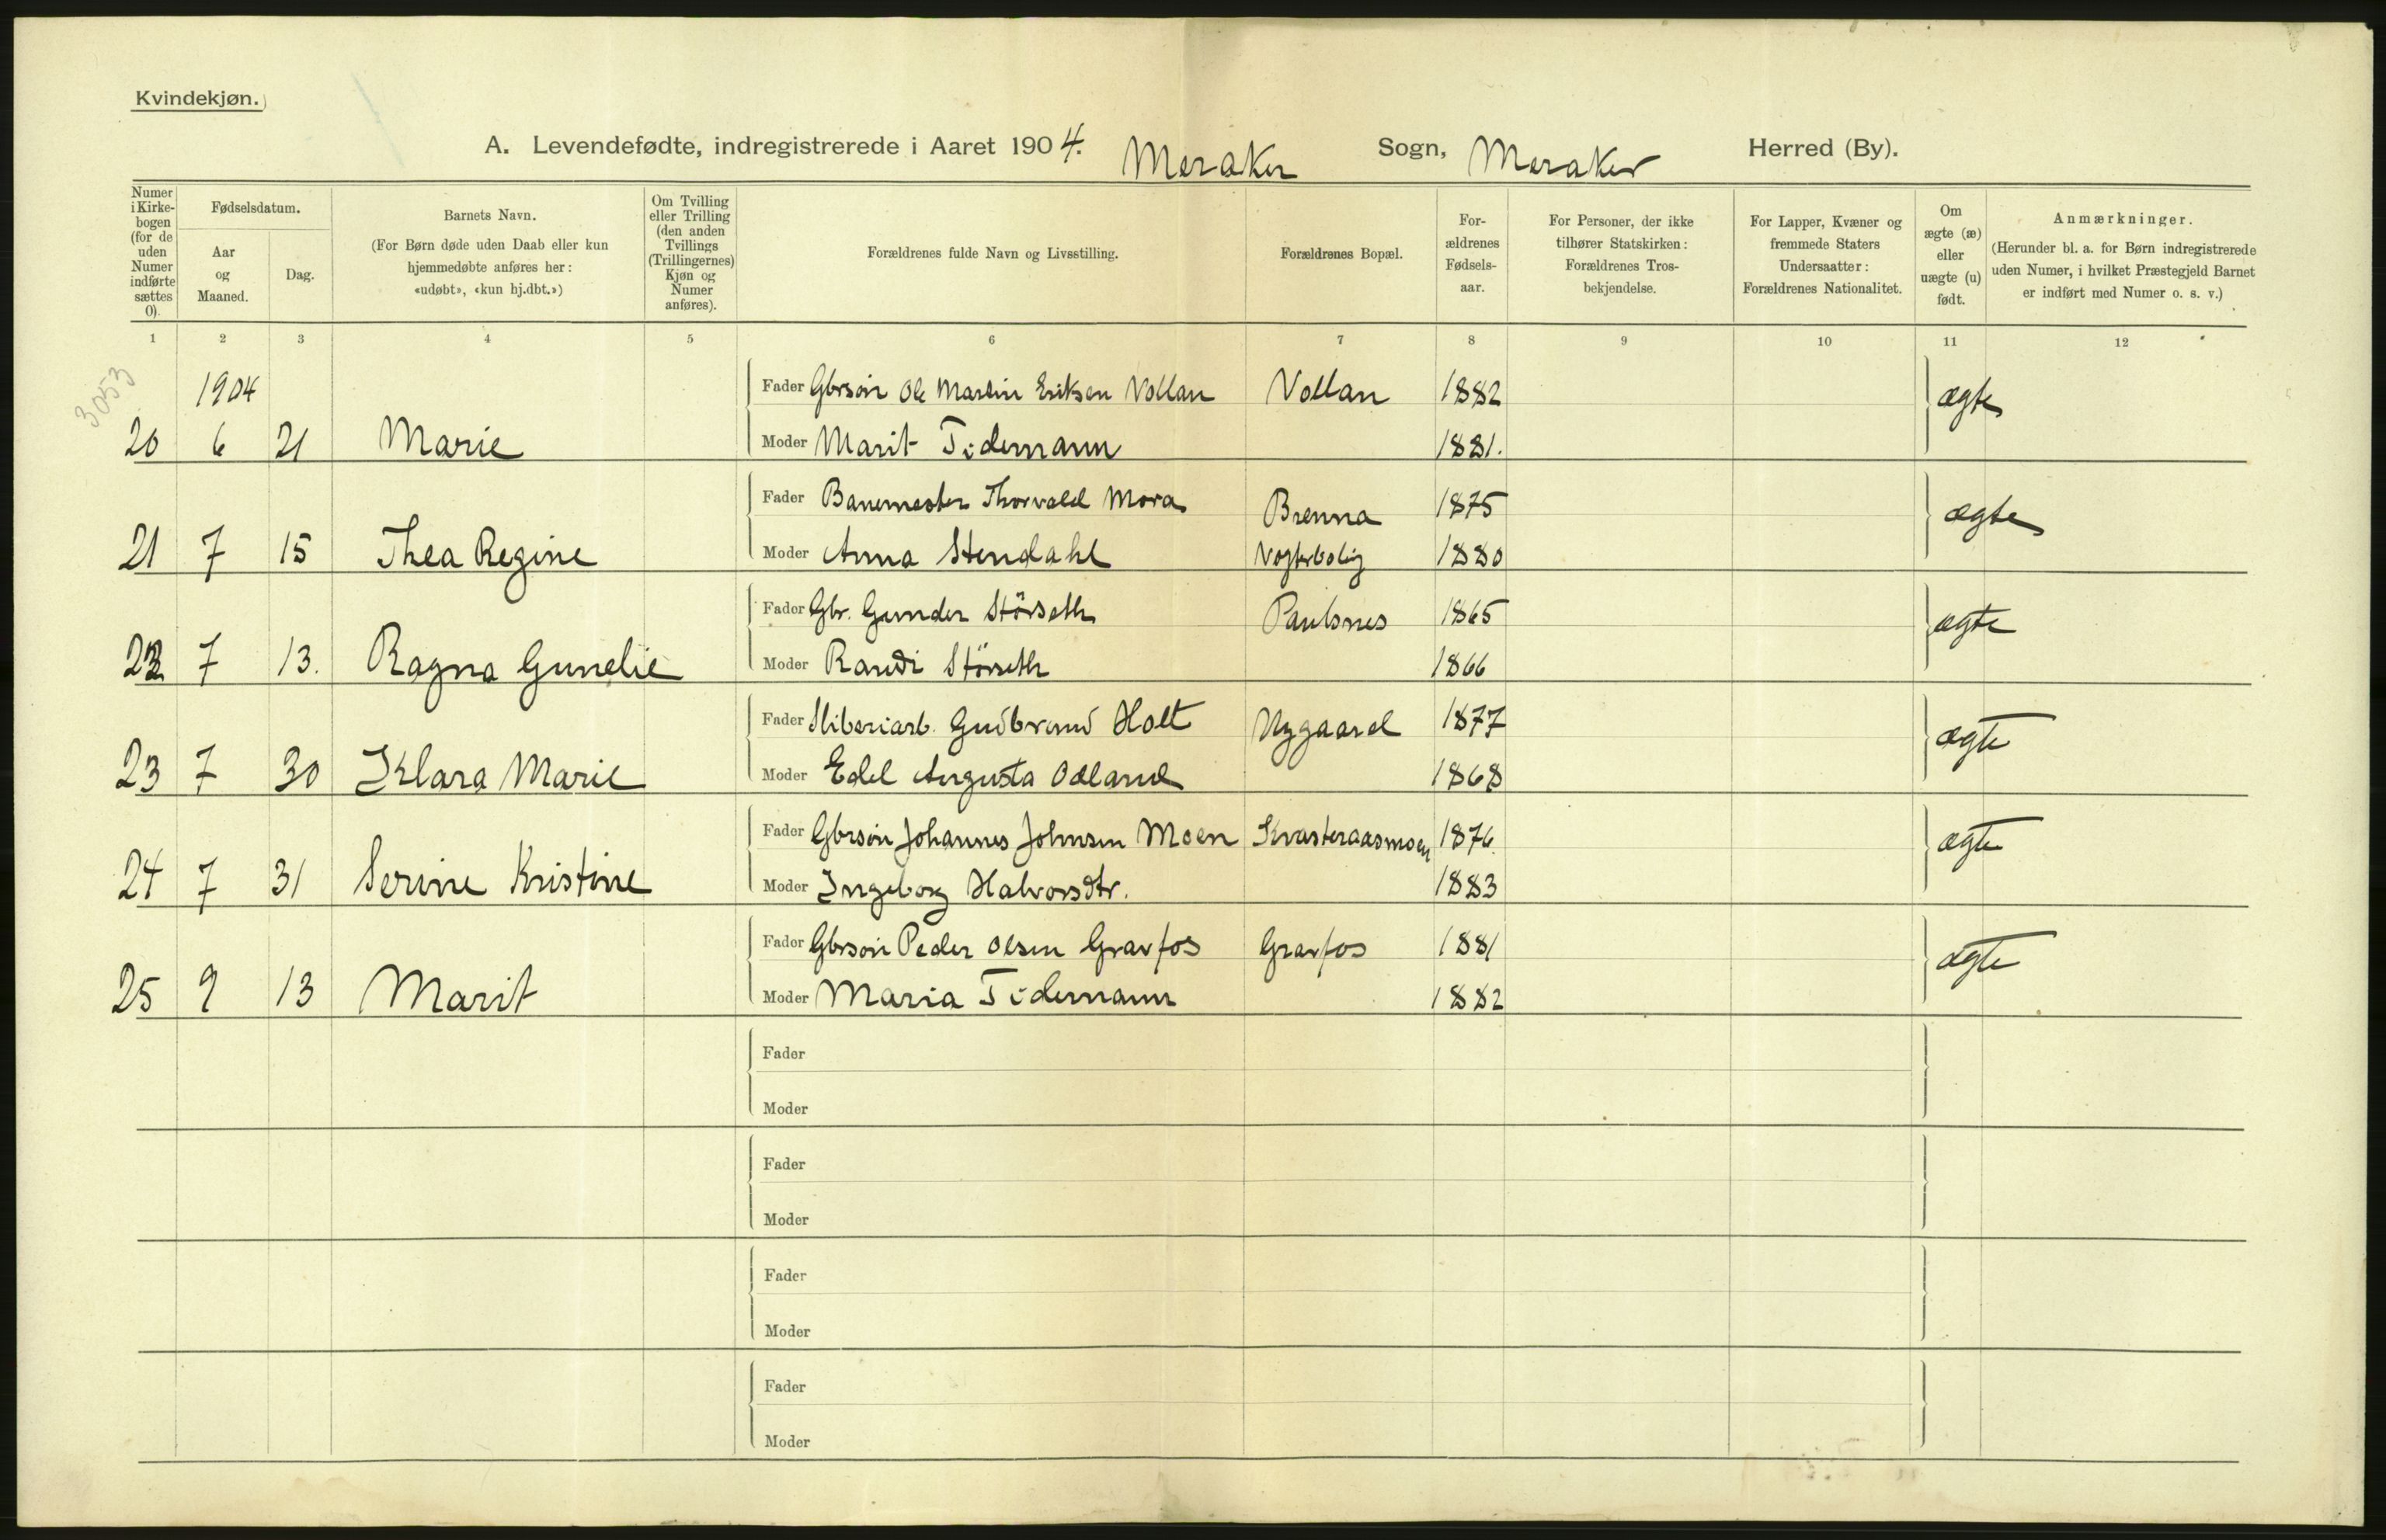 Kvindekjøn.
A. Levendefødte, indregistrerede i Aaret 1904. Meraker Sogn, Meraker Herred (By).
Numer i Kirke-bogen (for de uden Numer indførte sættes 0).
Fødselsdatum.
Aar og Maaned.
Dag.
Barnets Navn.
(For Børn døde uden Daab eller kun
hjemmedøbte anføres her:
«udøbt», «kun hj.dbt.»)
Om Tvilling
eller Trilling
(den anden
Tvillings
(Trillingernes)
Kjøn og
Numer
anføres).
Forældrenes fulde Navn og Livsstilling.
Forældrenes Bopæl.
For-
ældrenes
Fødsels-
aar.
For Personer, der ikke
tilhører Statskirken:
Forældrenes Tros-
bekjendelse.
For Lapper, Kvæner og
fremmede Staters
Undersaatter:
Forældrenes Nationalitet.
Om
ægte (æ)
eller
uægte (u)
født.
Anmærkninger.
(Herunder bl. a. for Børn indregistrerede
uden Numer, i hvilket Præstegjeld Barnet
er indført med Numer o. s. v.)
1 2 3 4 5 6 7 8 9 10 11 12
3053
1904 Fader Gbrsøn Ole Martin Eriksen Vollan Vollan 1882 ægte
20 6 21 Marie Moder Marit Tidemann 1881.
Fader Banemester Thorvald Mora Brenna 1875 ægte
21 7 15 Thea Regine Moder Anna Stendahl Vogterbolig 1880
Fader Gbr. Gunder Störseth Paulsnes 1865 ægte
22 7 13. Ragna Gunelie Moder Randi Störseth 1866
Fader Sliberiarb. Gudbrand Holt Nygaard 1877 ægte
23 7 30 Klara Marie Moder Edel Augusta Odland 1868
Fader Gbrsøn Johannes Johnsen Moen Kvasteraasmoen 1876. ægte
24 7 31 Serine Kristine Moder Ingeborg Halvorsdtr. 1883
Fader Gbrsøn Peder Olsen Gravfos Gravfos 1881 ægte
25 9 13 Marit Moder Maria Tidemann 1882
Fader
Moder
Fader
Moder
Fader
Moder
Fader
Moder